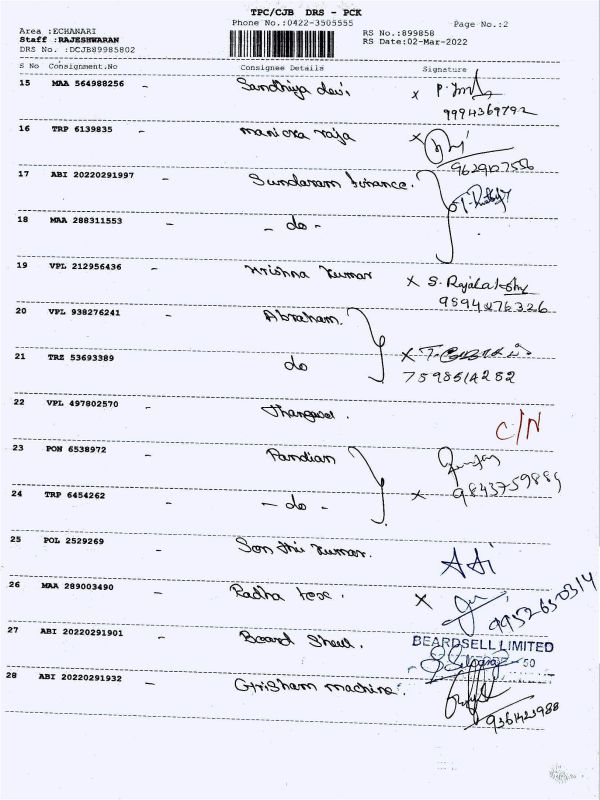 TPC/CJB DRS - PCK
Phone No.:0422-3505555
Page No.:2
Area :ECHANARI
Staff :RAJESHWARAN
DRS No. :DCJB89985802
RS No.:899858
RS Date:02-Mar-2022
S No Consignment.No Consignee Details Signature
15 MAA 564988256 - Sandhiya devi x
9994369792
16 TRP 6139835 - manicka raja x
17 ABI 20220291997 - Sundaram finance.
18 MAA 288311553 - - do -
19 VPL 212956436 - Krishna Kumar x S. Rajalakshmi
9894476326
20 VPL 938276241 - Abraham.
21 TRZ 53693389 do x
7598514282
22 VPL 497802570 - Thangavel. C/N
23 PON 6538972 - Pandian
24 TRP 6454262 - - do - x
25 POL 2529269 - Kumar.
26 MAA 289003490 - Radha tex. x
9952650314
27 ABI 20220291901 - Beard Shell.
BEARDSELL LIMITED
28 ABI 20220291932 - Grisham machine.
9361423988